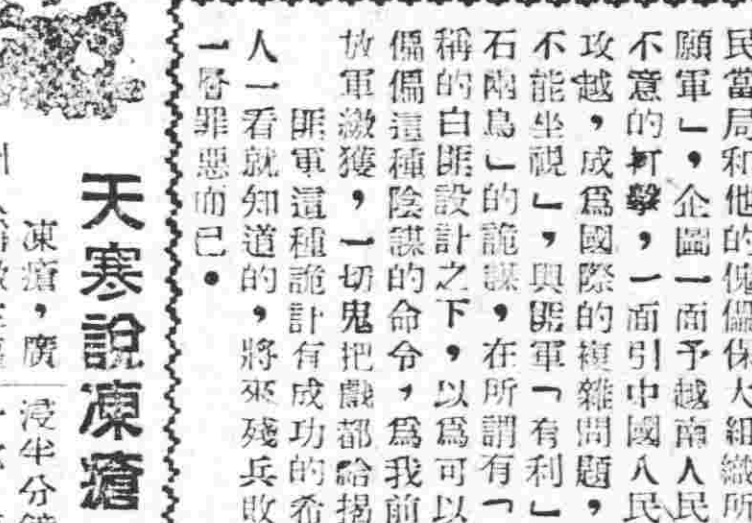 民當局和他的傀儡保大組織所
願軍」，企圖一面予越南人民
不意的打擊，一面引中國人民
攻越，成爲國際的複雜問題，
不能坐視」，與匪軍「有利」
石兩鳥」的詭謀，在所謂有「
稱的白匪設計之下，以爲可以
偏偏這種陰謀的命令，爲我前
放軍繳獲，一切鬼把戲都給揭
匪軍這種詭計有成功的希
人一看就知道的，將來殘兵敗
一層罪惡而已。
天寒說凍瘡
凍瘡，廣
浸半分鐘